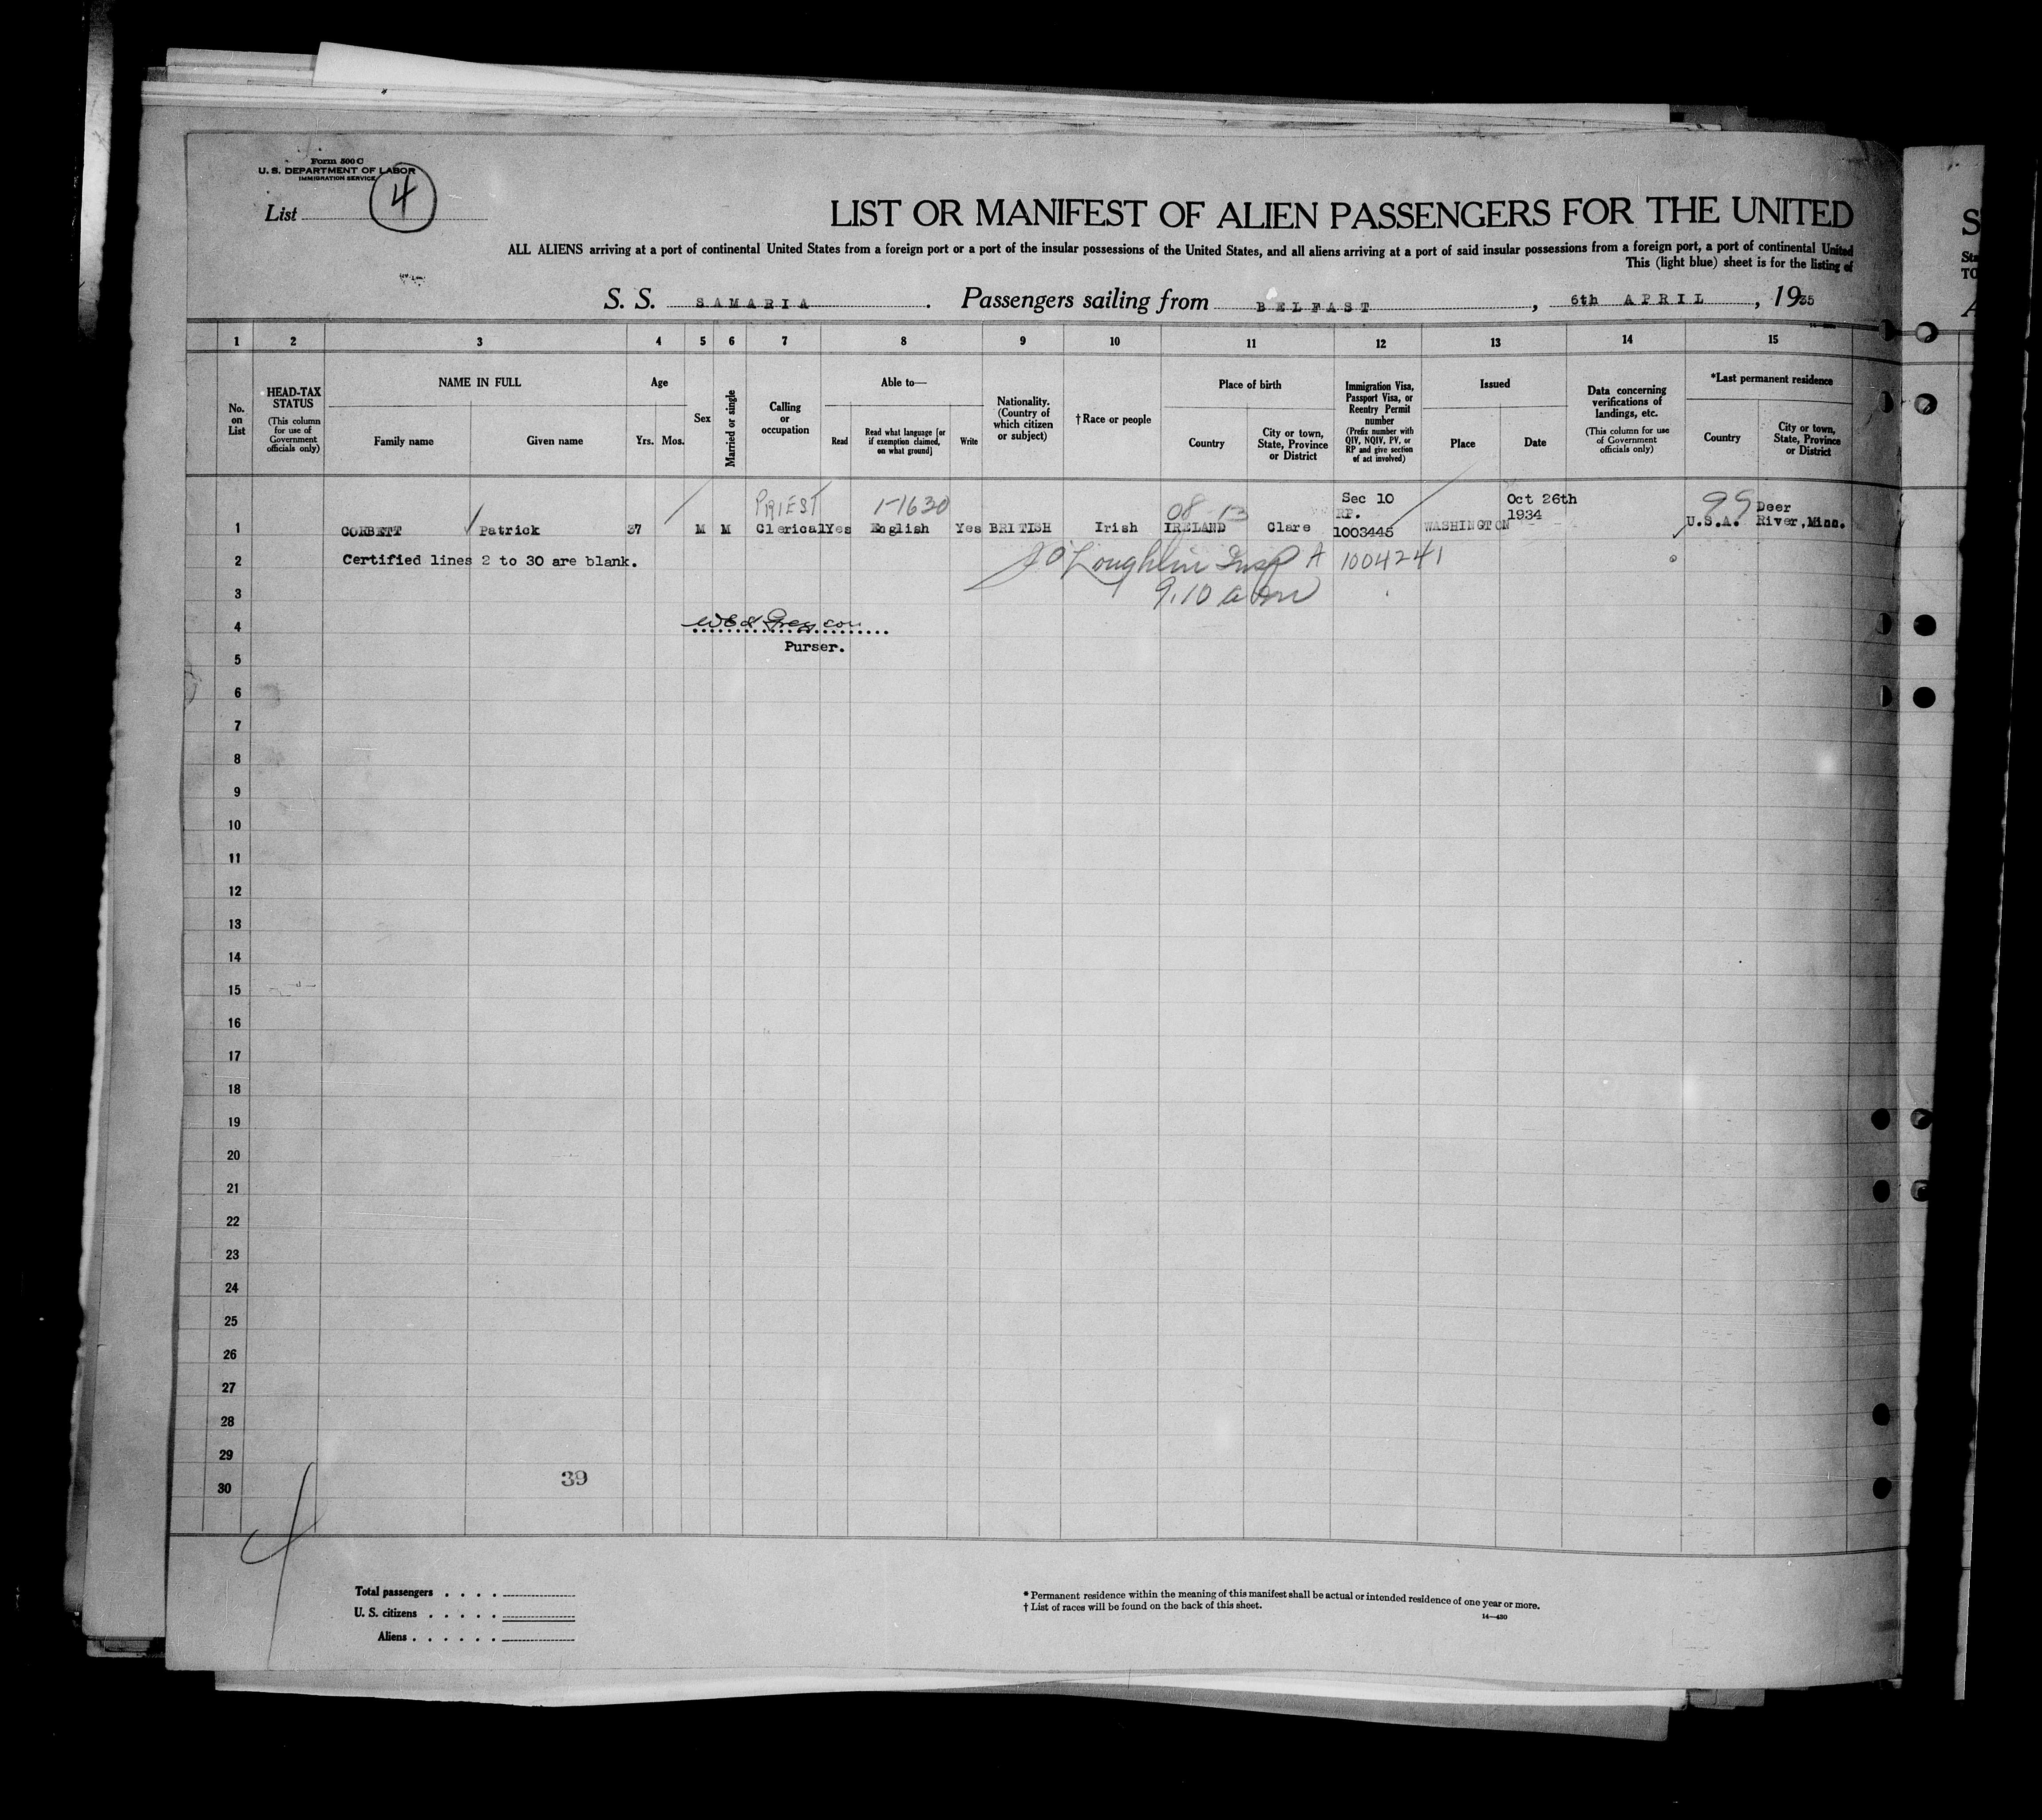 Form 500 C
U. S. DEPARTMENT OF LABOR
IMMIGRATION SERVICE
List 4
LIST OR MANIFEST OF ALIEN PASSENGERS FOR THE UNITED
ALL ALIENS arriving at a port of continental United States from a foreign port or a port of the insular possessions of the United States, and all aliens arriving at a port of said insular possessions from a foreign port, a port of continental United
This (light blue) sheet is for the listing of
S. S. SAMARIA. Passengers sailing from BELFAST, 6th APRIL, 1935
1 2 3 4 5 6 7 8 9 10 11 12 13 14 15
No. on List
HEAD-TAX STATUS (This column for use of Government officials only)
NAME IN FULL
Family name Given name
Age
Yrs. Mos.
Sex
Married or single
Calling or occupation
Able to—
Read
Read what language [or if exemption claimed, on what ground]
Write
Nationality. (Country of which citizen or subject)
† Race or people
Place of birth
Country
City or town, State, Province or District
Immigration Visa, Passport Visa, or Reentry Permit number (Prefix number with QIV, NQIV, PV, or RP and give section of act involved)
Issued
Place Date
Data concerning verifications of landings, etc. (This column for use of Government officials only)
*Last permanent residence
Country
City or town, State, Province or District
PRIEST 1-1630 08-13 Sec 10 RP. Oct 26th 1934 99 Deer
1 CORBETT Patrick 37 M M Clerical Yes English Yes BRITISH Irish IRELAND Clare 1003445 WASHINGTON U.S.A. River, Minn.
2 Certified lines 2 to 30 are blank. J O'Loughlin Insp A 1004241
3 9.10 am
4
Purser.
5
6
7
8
9
10
11
12
13
14
15
16
17
18
19
20
21
22
23
24
25
26
27
28
29
39
30
Total passengers . . . .
U. S. citizens . . . . .
Aliens . . . . . .
* Permanent residence within the meaning of this manifest shall be actual or intended residence of one year or more.
† List of races will be found on the back of this sheet.
14—430